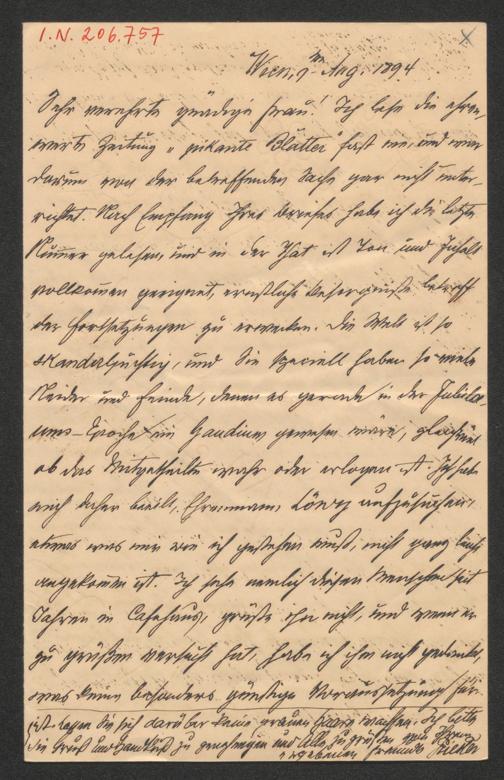 I.N. 206.757
Wien, 9ten Aug. 1894
Sehr verehrte gnädige Frau! Ich lese die ehren-
werte Zeitung „pikante Blätter" fast nie, und war
darum von der betreffenden Sache gar nicht unter-
richtet. Nach Empfang Ihres Briefes habe ich die letzte
Numer gelesen, und in der That ist Ton und Inhalt
vollkomen geeignet, ernstliche Besorgnisse betreff
der Fortsetzungen zu erwecken. Die Welt ist so
skandalsüchtig, und Sie speciell haben so viele
Neider und Feinde, denen es gerade in der Jubilä-
ums-Epoche ein Gaudium gewesen wäre, gleichviel
ob das Mitgetheilte wahr oder erlogen ist. Ich habe
mich daher beeilt, Ehrenmann Löwy aufzusuchen,
etwas was mir wie ich gestehen muß, nicht ganz leicht
angekomen ist. Ich sehe nemlich diesen Menschen seit
Jahren im Cafehaus, grüße ihn nicht, und wenn er
zu grüßen versucht hat, habe ich ihm nicht gedankt,
was keine besonders günstige Voraussetzung für
ist lassen Sie sich darüber keine grauen Haare wachsen. Ich bitte
die Gruß und Handkuß zu genehmigen und Alle zu grüßen von Ihrem
ergebenen Freunde